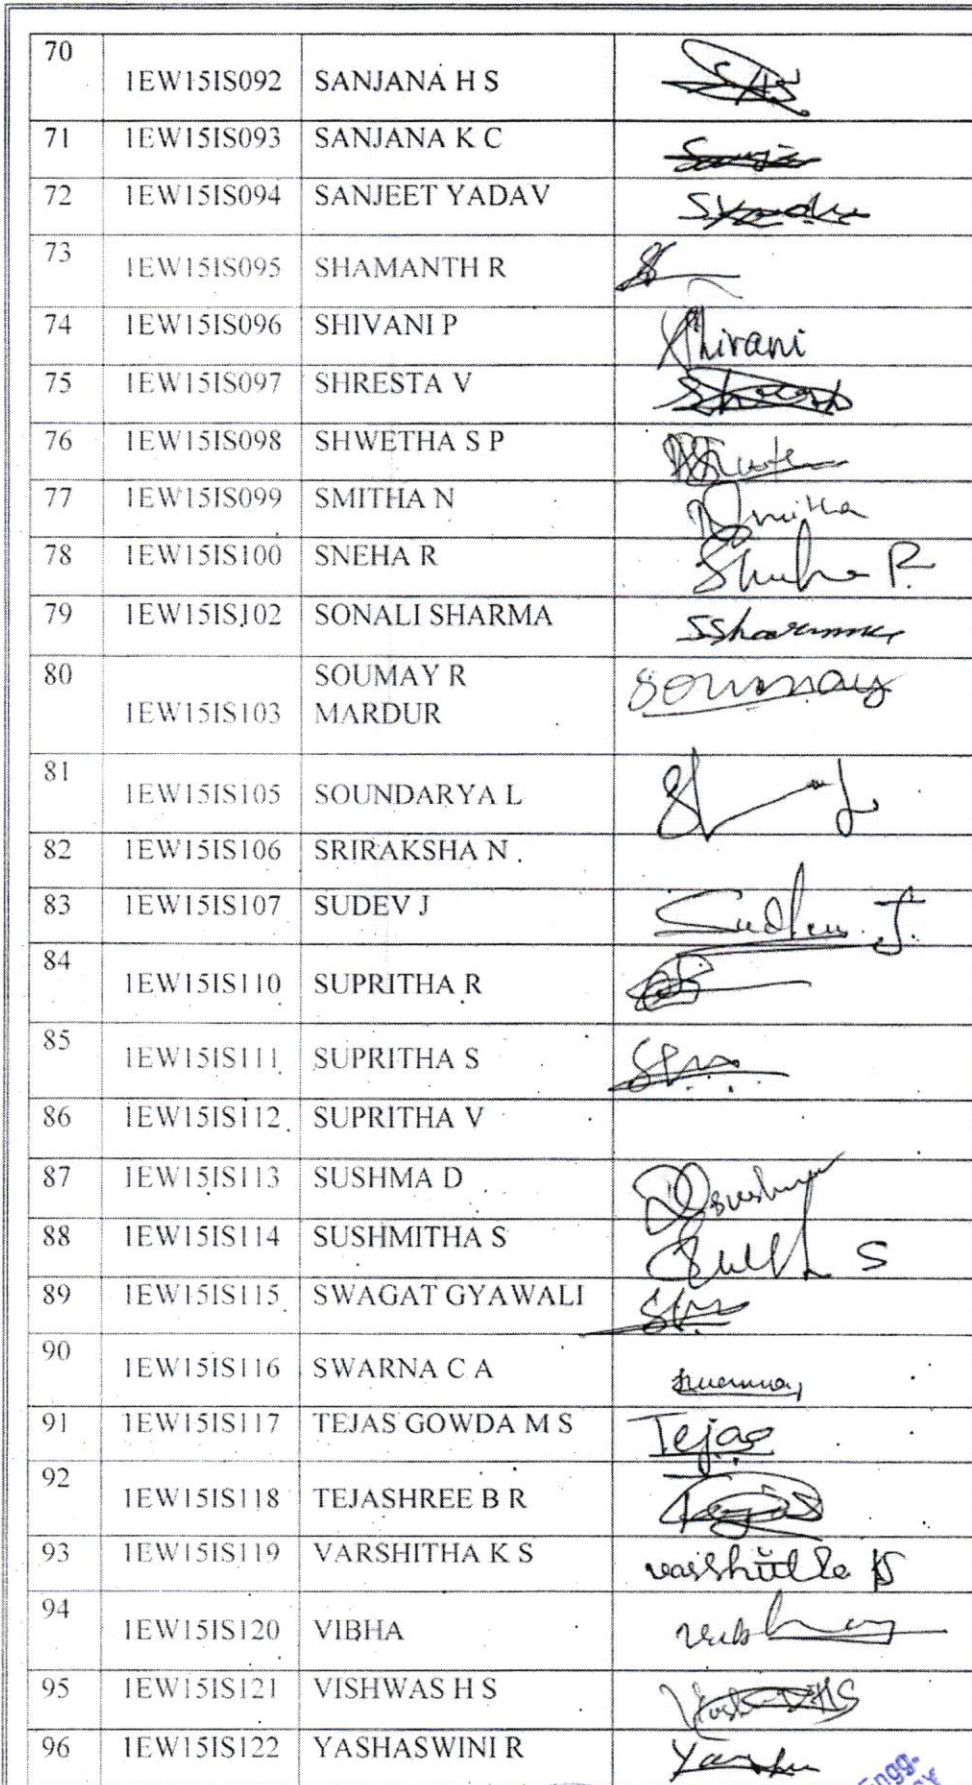 70
1EW15IS092 SANJANA H S
71 1EW15IS093 SANJANA K C
72 1EW15IS094 SANJEET YADAV
73
1EW15IS095 SHAMANTH R
74 1EW15IS096 SHIVANI P Shivani
75 1EW15IS097 SHRESTA V
76 1EW15IS098 SHWETHA S P
77 1EW15IS099 SMITHA N Smitha
78 1EW15IS100 SNEHA R
79 1EW15IS102 SONALI SHARMA SSharma
80 SOUMAY R soumay
1EW15IS103 MARDUR
81
1EW15IS105 SOUNDARYA L
82 1EW15IS106 SRIRAKSHA N
83 1EW15IS107 SUDEV J
84
1EW15IS110 SUPRITHA R
85
1EW15IS111 SUPRITHA S
86 1EW15IS112 SUPRITHA V
87 1EW15IS113 SUSHMA D
88 1EW15IS114 SUSHMITHA S
89 1EW15IS115 SWAGAT GYAWALI
90
1EW15IS116 SWARNA C A
91 1EW15IS117 TEJAS GOWDA M S Tejas
92
1EW15IS118 TEJASHREE B R
93 1EW15IS119 VARSHITHA K S
94
1EW15IS120 VIBHA
95 1EW15IS121 VISHWAS H S
96 1EW15IS122 YASHASWINI R
Engg.